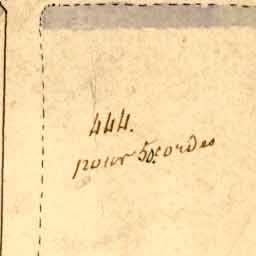 444.
pour 50. cordes